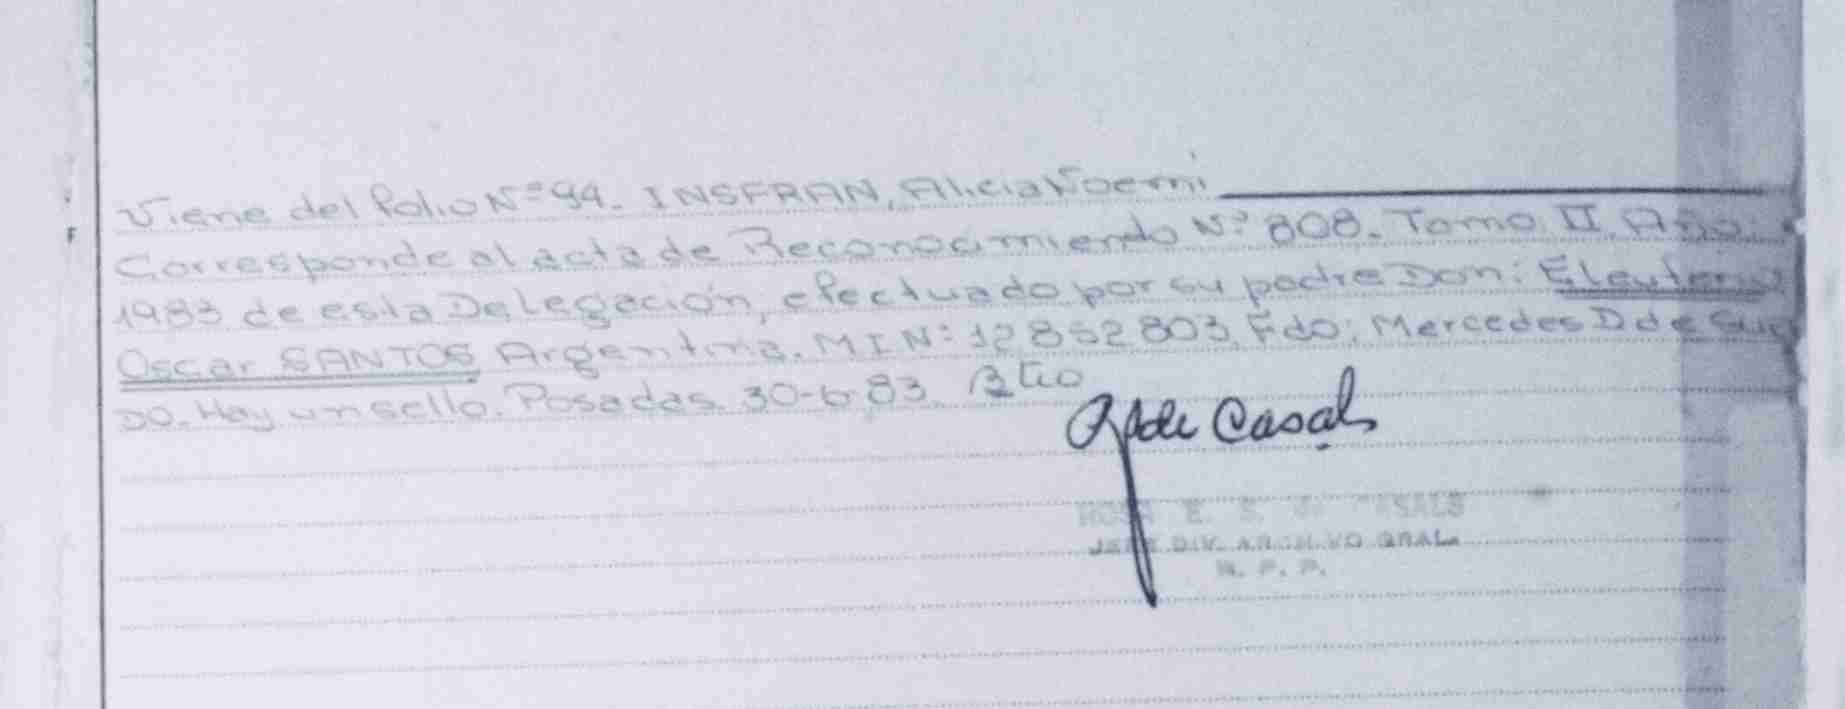 Viene del folio Nº 94. INSFRAN, Alicia Noemi
Corresponde al acta de Reconocimiento Nº 808. Tomo II. Año:
1983 de esta Delegación, efectuado por su padre Don: Eleuterio
Oscar SANTOS Argentino. MIN: 12852803. Fdo: Mercedes D de
DO. Hay un sello. Posadas. 30-6-83.
de Casals
E. S. CASALS
JEFE DIV. ARCHIVO GRAL.
R. P. P.